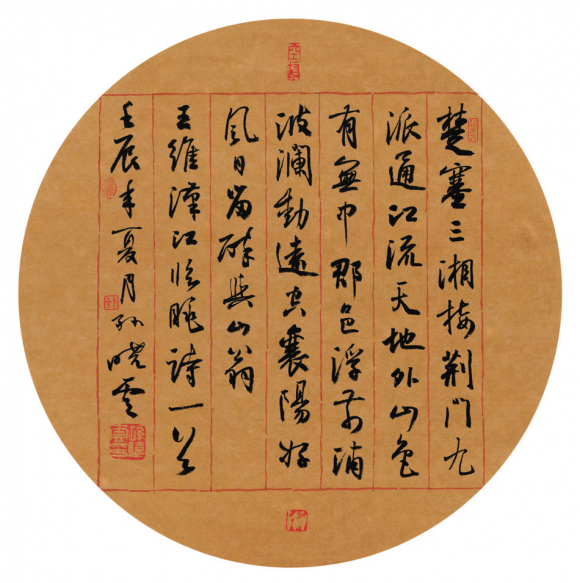 楚塞三湘接荆門九
派通江流天地外山色
有無中郡邑浮前浦
波瀾動遠空襄陽好
風日留醉與山翁
王維漢江臨眺詩一首
壬辰年夏月孙晓雲